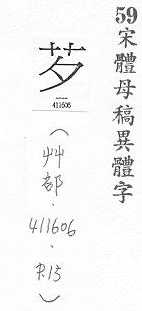 59宋體母稿異體字
芗
411606
(艸部.411606.P.15)